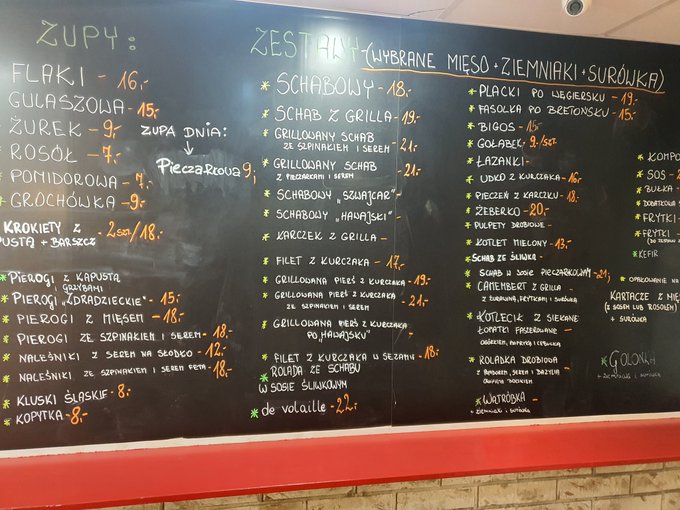 ZUPY:
FLAKI - 16,-
GULASZOWA - 15,-
ŻUREK - 9,-
ROSÓŁ - 7,-
POMIDOROWA - 7,-
GROCHÓWKA - 9,-
ZUPA DNIA:
PIECZARKOWA 9,-
KROKIETY Z
KAPUSTĄ + BARSZCZ - 2szt/18,-
* PIEROGI Z KAPUSTĄ
I GRZYBAMI
* PIEROGI "ZDRADZIECKIE" - 15,-
* PIEROGI Z MIĘSEM - 18,-
* PIEROGI ZE SZPINAKIEM I SEREM - 18,-
* NALEŚNIKI Z SEREM NA SŁODKO - 12,-
* NALEŚNIKI ZE SZPINAKIEM I SEREM FETA - 18,-
* KLUSKI ŚLĄSKIE - 8,-
* KOPYTKA - 8,-
ZESTAWY - (WYBRANE MIĘSO + ZIEMNIAKI + SURÓWKA)
* SCHABOWY - 18,-
* SCHAB Z GRILLA - 19,-
* GRILLOWANY SCHAB
ZE SZPINAKIEM I SEREM - 21,-
* GRILLOWANY SCHAB
Z PIECZARKAMI I SEREM - 21,-
* SCHABOWY "SZWAJCAR" -
* SCHABOWY "HAWAJSKI" -
* KARCZEK Z GRILLA -
* FILET Z KURCZAKA - 17,-
* GRILLOWANA PIERŚ Z KURCZAKA - 19,-
* GRILLOWANA PIERŚ Z KURCZAKA
ZE SZPINAKIEM I SEREM - 21,-
* GRILLOWANA PIERŚ Z KURCZAKA
PO "HAWAJSKU" -
* FILET Z KURCZAKA W SEZAMU - 18,-
* ROLADA ZE SCHABU
W SOSIE ŚLIWKOWYM
* de volaille - 22,-
* PLACKI PO WĘGIERSKU - 19,-
* FASOLKA PO BRETOŃSKU - 15,-
* BIGOS - 15,-
* GOŁĄBEK - 9,-/SZT.
* ŁAZANKI -
* UDKO Z KURCZAKA - 16,-
* PIECZEŃ Z KARCZKU - 18,-
* ŻEBERKO - 20,-
* PULPETY DROBIOWE -
* KOTLET MIELONY - 13,-
* SCHAB ZE ŚLIWKĄ -
* SCHAB W SOSIE PIECZARKOWYM - 21,-
* CAMEMBERT Z GRILLA -
Z ŻURAWINĄ, FRYTKAMI I SURÓWKĄ
* KOTLECIK Z SIEKANEJ
ŁOPATKI FASZEROWANE -
OGÓRKIEM, PAPRYKĄ I CEBULKĄ
* ROLADKA DROBIOWA
Z POMIDOREM, SEREM I BAZYLIĄ
* WĄTRÓBKA -
+ ZIEMNIAKI + SURÓWKA
* KOMPO
* SOS - 2
* BUŁKA -
* DODATKOWA S
* FRYTKI -
* FRYTKI -
* KEFIR
* OPAKOWANIE NA
KARTACZE Z MIĘ
(Z SOSEM LUB ROSOŁEM)
+ SURÓWKA
* GOLONKA
+ ZIEMNIAKI + SURÓWKA